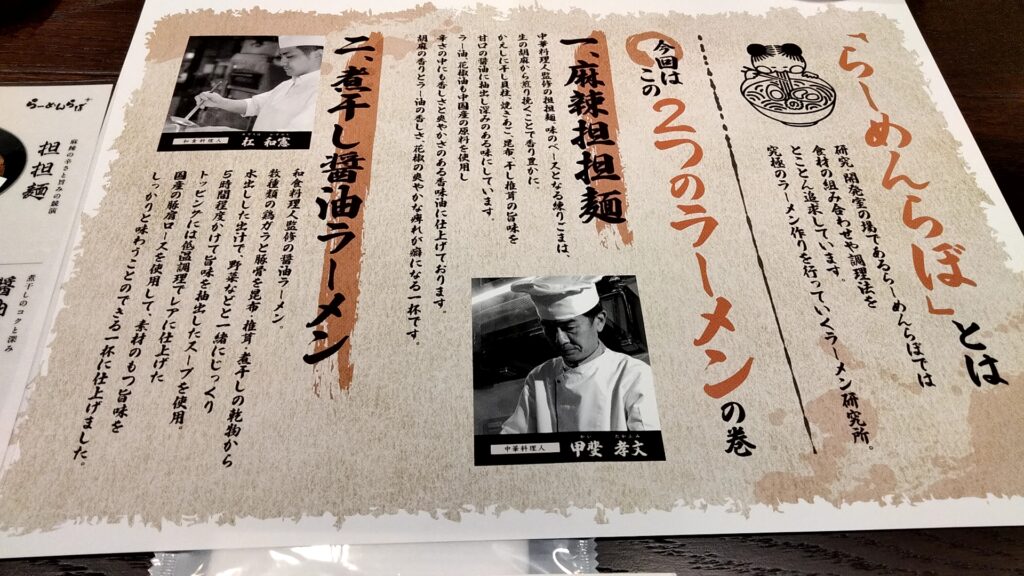 「らーめんらぼ」とは
研究・開発室の場であるらーめんらぼでは
食材の組み合わせや調理法を
とことん追求しています。
究極のラーメン作りを行っていくラーメン研究所。
今回は
この
2つのラーメンの巻
一、麻辣担担麺
中華料理人監修の担担麺。味のベースとなる練りごまは、
生の胡麻から煎り挽くことで香り豊かに。
かえしに干し貝柱、焼きあご、昆布、干し椎茸の旨味を
甘口の醤油に抽出し深みのある味にしています。
ラー油、花椒油も中国産の原料を使用し
辛さの中にも香しさと爽やかさのある香味油に仕上げております。
胡麻の香りとラー油の香しさ、花椒の爽やかな痺れが癖になる一杯です。
中華料理人
甲斐 孝文
かい たかふみ
二、煮干し醤油ラーメン
和食料理人
杜 和憲
和食料理人監修の醤油ラーメン。
数種類の鶏ガラと豚骨を昆布・椎茸、煮干しの乾物から
水出しした出汁で、野菜などと一緒にじっくり
5時間程度かけて旨味を抽出したスープを使用。
トッピングには低温調理でレアに仕上げた
国産の豚肩ロースを使用して、素材のもつ旨味を
しっかりと味わうことのできる一杯に仕上げました。
らーめんらぼ+
麻辣の辛さと旨みの競演
担担麺
煮干しのコクと深み
醤油